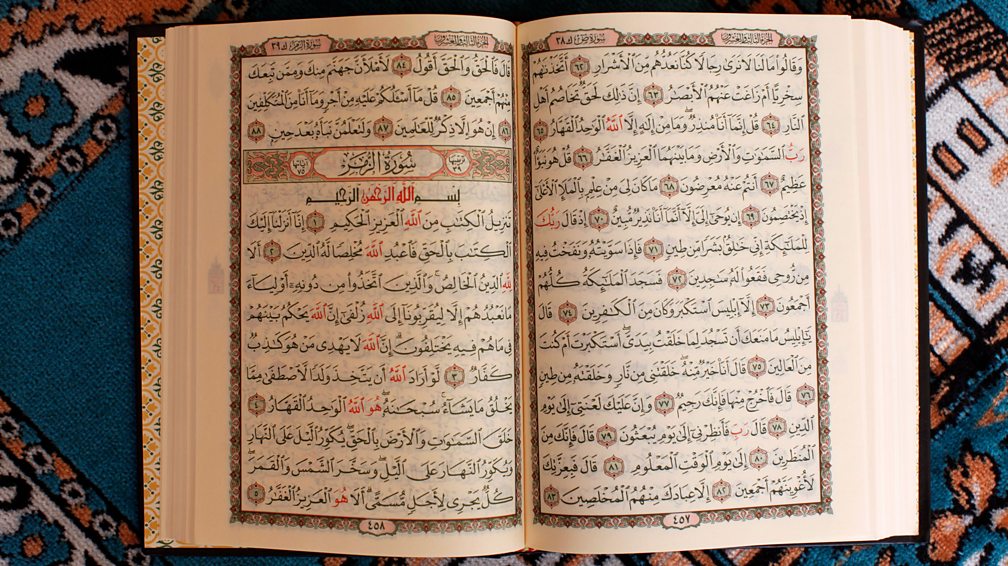 الجزء الثالث والعشرون سورة ص ٣٨
وَقَالُوا۟ مَا لَنَا لَا نَرَىٰ رِجَالًا كُنَّا نَعُدُّهُم مِّنَ ٱلْأَشْرَارِ ٦٢ أَتَّخَذْنَٰهُمْ
سِخْرِيًّا أَمْ زَاغَتْ عَنْهُمُ ٱلْأَبْصَٰرُ ٦٣ إِنَّ ذَٰلِكَ لَحَقٌّ تَخَاصُمُ أَهْلِ
ٱلنَّارِ ٦٤ قُلْ إِنَّمَآ أَنَا۠ مُنذِرٌ ۖ وَمَا مِنْ إِلَٰهٍ إِلَّا ٱللَّهُ ٱلْوَٰحِدُ ٱلْقَهَّارُ ٦٥
رَبُّ ٱلسَّمَٰوَٰتِ وَٱلْأَرْضِ وَمَا بَيْنَهُمَا ٱلْعَزِيزُ ٱلْغَفَّٰرُ ٦٦ قُلْ هُوَ نَبَؤٌا۟
عَظِيمٌ ٦٧ أَنتُمْ عَنْهُ مُعْرِضُونَ ٦٨ مَا كَانَ لِىَ مِنْ عِلْمٍۭ بِٱلْمَلَإِ ٱلْأَعْلَىٰٓ
إِذْ يَخْتَصِمُونَ ٦٩ إِن يُوحَىٰٓ إِلَىَّ إِلَّآ أَنَّمَآ أَنَا۠ نَذِيرٌ مُّبِينٌ ٧٠ إِذْ قَالَ رَبُّكَ
لِلْمَلَٰٓئِكَةِ إِنِّى خَٰلِقٌۢ بَشَرًا مِّن طِينٍ ٧١ فَإِذَا سَوَّيْتُهُۥ وَنَفَخْتُ فِيهِ
مِن رُّوحِى فَقَعُوا۟ لَهُۥ سَٰجِدِينَ ٧٢ فَسَجَدَ ٱلْمَلَٰٓئِكَةُ كُلُّهُمْ
أَجْمَعُونَ ٧٣ إِلَّآ إِبْلِيسَ ٱسْتَكْبَرَ وَكَانَ مِنَ ٱلْكَٰفِرِينَ ٧٤ قَالَ
يَٰٓإِبْلِيسُ مَا مَنَعَكَ أَن تَسْجُدَ لِمَا خَلَقْتُ بِيَدَىَّ ۖ أَسْتَكْبَرْتَ أَمْ كُنتَ
مِنَ ٱلْعَالِينَ ٧٥ قَالَ أَنَا۠ خَيْرٌ مِّنْهُ ۖ خَلَقْتَنِى مِن نَّارٍ وَخَلَقْتَهُۥ مِن طِينٍ
٧٦ قَالَ فَٱخْرُجْ مِنْهَا فَإِنَّكَ رَجِيمٌ ٧٧ وَإِنَّ عَلَيْكَ لَعْنَتِىٓ إِلَىٰ يَوْمِ
ٱلدِّينِ ٧٨ قَالَ رَبِّ فَأَنظِرْنِىٓ إِلَىٰ يَوْمِ يُبْعَثُونَ ٧٩ قَالَ فَإِنَّكَ مِنَ
ٱلْمُنظَرِينَ ٨٠ إِلَىٰ يَوْمِ ٱلْوَقْتِ ٱلْمَعْلُومِ ٨١ قَالَ فَبِعِزَّتِكَ
لَأُغْوِيَنَّهُمْ أَجْمَعِينَ ٨٢ إِلَّا عِبَادَكَ مِنْهُمُ ٱلْمُخْلَصِينَ ٨٣
٤٥٧
الجزء الثالث والعشرون سورة الزمر ٣٩
قَالَ فَٱلْحَقُّ وَٱلْحَقَّ أَقُولُ ٨٤ لَأَمْلَأَنَّ جَهَنَّمَ مِنكَ وَمِمَّن تَبِعَكَ
مِنْهُمْ أَجْمَعِينَ ٨٥ قُلْ مَآ أَسْـَٔلُكُمْ عَلَيْهِ مِنْ أَجْرٍ وَمَآ أَنَا۠ مِنَ ٱلْمُتَكَلِّفِينَ
٨٦ إِنْ هُوَ إِلَّا ذِكْرٌ لِّلْعَٰلَمِينَ ٨٧ وَلَتَعْلَمُنَّ نَبَأَهُۥ بَعْدَ حِينٍۭ ٨٨
ترتيبها ٣٩ سُورَةُ الزُّمَرِ آياتها ٧٥
بِسْمِ ٱللَّهِ ٱلرَّحْمَٰنِ ٱلرَّحِيمِ
تَنزِيلُ ٱلْكِتَٰبِ مِنَ ٱللَّهِ ٱلْعَزِيزِ ٱلْحَكِيمِ ١ إِنَّآ أَنزَلْنَآ إِلَيْكَ
ٱلْكِتَٰبَ بِٱلْحَقِّ فَٱعْبُدِ ٱللَّهَ مُخْلِصًا لَّهُ ٱلدِّينَ ٢ أَلَا
لِلَّهِ ٱلدِّينُ ٱلْخَالِصُ ۚ وَٱلَّذِينَ ٱتَّخَذُوا۟ مِن دُونِهِۦٓ أَوْلِيَآءَ
مَا نَعْبُدُهُمْ إِلَّا لِيُقَرِّبُونَآ إِلَى ٱللَّهِ زُلْفَىٰٓ إِنَّ ٱللَّهَ يَحْكُمُ بَيْنَهُمْ
فِى مَا هُمْ فِيهِ يَخْتَلِفُونَ ۗ إِنَّ ٱللَّهَ لَا يَهْدِى مَنْ هُوَ كَٰذِبٌ
كَفَّارٌ ٣ لَّوْ أَرَادَ ٱللَّهُ أَن يَتَّخِذَ وَلَدًا لَّٱصْطَفَىٰ مِمَّا
يَخْلُقُ مَا يَشَآءُ ۚ سُبْحَٰنَهُۥ ۖ هُوَ ٱللَّهُ ٱلْوَٰحِدُ ٱلْقَهَّارُ ٤
خَلَقَ ٱلسَّمَٰوَٰتِ وَٱلْأَرْضَ بِٱلْحَقِّ ۖ يُكَوِّرُ ٱلَّيْلَ عَلَى ٱلنَّهَارِ
وَيُكَوِّرُ ٱلنَّهَارَ عَلَى ٱلَّيْلِ ۖ وَسَخَّرَ ٱلشَّمْسَ وَٱلْقَمَرَ ۖ
كُلٌّ يَجْرِى لِأَجَلٍ مُّسَمًّى ۗ أَلَا هُوَ ٱلْعَزِيزُ ٱلْغَفَّٰرُ ٥
٤٥٨